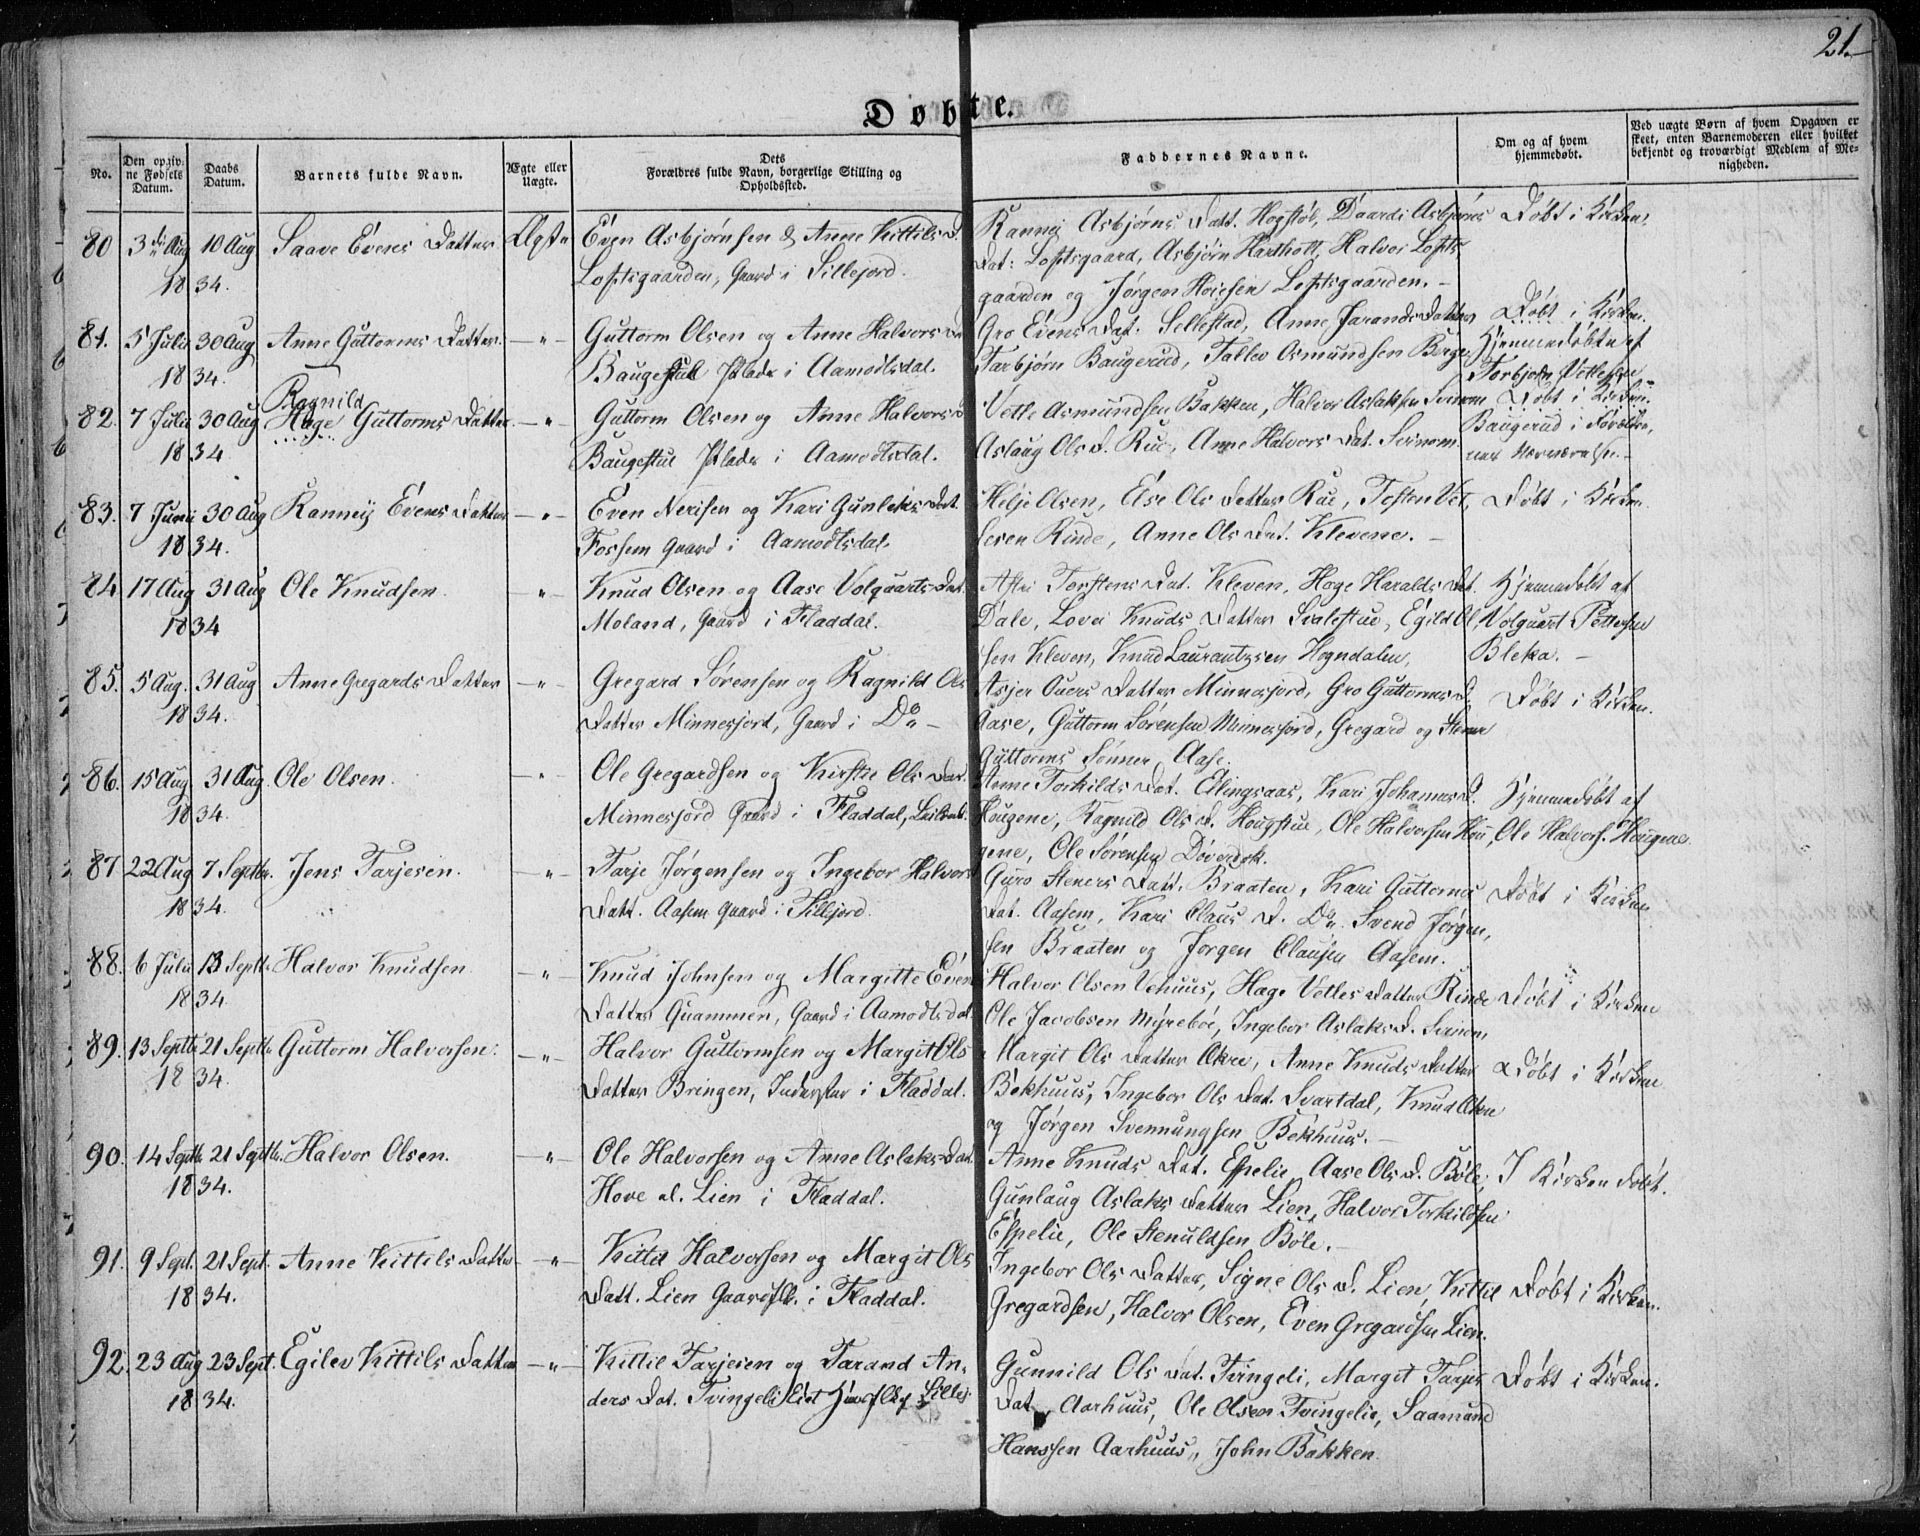 21.
Døbte.
No.
Den opgiv-
ne Fødsels
Datum.
Daabs
Datum.
Barnets fulde Navn.
Ægte eller
Uægte.
Dets
Forældres fulde Navn, borgerlige Stilling og
Opholdssted.
Faddernes Navne.
Om og af hvem
hjemmedøbt.
Ved uægte Børn af hvem Opgaven er
skeet, enten Barnemoderen eller hvilket
bekjendt og troværdigt Medlem af Me-
nigheden.
80 3 Aug 10 Aug Saave Evens Datter Ægte Even Asbjørnsen & Anne Kittils D.
1834.
Loftsgaarden, Gaard i Sillejord.
Rannei Asbjørns Datt. Hogstøl, Daardi Asbjørns
Dat: Loftsgaard, Asbjørn Hartholt, Halvor Lofts
gaarden og Jørgen Loftsgaarden.
Døbt i Kirken.
81. 5 Julii 30 Aug Anne Guttorms Datter. —"— Guttorm Olsen og Anne Halvors Dat
1834.
Baugestul Plads i Aamodtsdal.
Gro Evens Dat. Sellestad, Anne Jarands Datter
Tarbjørn Baugerud, Tallev Osmundsen Berge
Døbt i Kirken.
Hjemmedøbte af
Torbjørn Vetlesen
82. 7 Julii 30 Aug Ragnild Høge Guttorms Datter. —"— Guttorm Olsen og Anne Halvors D
1834
Baugestul Plads i Aamodtsdal.
Vetle Asmundsen Bakken, Halvor Aslaksen Svinom
Aslaug Ols D. Rue, Anne Halvors Dat. Svinom.
Døbt i Kirken.
Baugerud i Forældre,
nes Nærværelse.
83. 7 Junii 30 Aug Ranneij Evens Datter —"— Even Nerisen og Kari Gunleks Dat.
1834.
Fossem Gaard i Aamodtsdal.
Helje Olsen, Else Ols Datter Rue, Tosten Vet,
lesen Rinde, Anne Ols Dat. Klevene.
Døbt i Kirken
84 17 Aug 31 Aug Ole Knudsen. —"— Knud Olsen og Aase Volquarts Dat.
1834
Moland, Gaard i Fladdal.
Torstens Dat. Kleven, Høge Haralds Dat.
Dale, Lovei Knuds Datter Svalestue, Egild Ol,
sen Kleven, Knud Laurantzsen Hogndalen,
Hjemmedøbt af
Volquart Pettersen
Bleka.
85. 5 Aug. 31 Aug Anne Gregards Datter —"— Gregard Sørensen og Ragnild Ols
1834.
Datter Minnesjord, Gaard i Do
Asjer Ouers Datter Minnesjord, Gro Guttorms D.
Aase, Guttorm Sørensen Minnesjord, Gregard og Stener
Guttorms Sønner Aase.
Døbt i Kirken.
86. 15 Aug. 31 Aug. Ole Olsen. —"— Ole Gregardsen og Kirstie Ols Dat.
1834.
Minnesjord Gaard i Fladdal,
Anne Torkilds Dat. Ellingsaas, Kari Johannes D.
Hougene, Ragnild Ols D. Hougstue, Ole Halvorsen Hou,
gene, Ole Sørensen Døverdok.
Hjemmedøbt af
Ole Halvors. Hougene
87 22 Aug 7 Septbr. Jens Tarjesen. —"— Tarje Jørgensen og Ingebor Halvors
1834.
Datt. Aasem Gaard i Sillejord.
Guro Steners Datt. Braaten, Kari Guttorms
Dat. Aasem, Kari Claus D. Do Svend Jørgen,
sen Braaten og Jørgen Clausen Aasem.
Døbt i Kirken
88. 6 Julii 13 Septbr. Halvor Knudsen —"— Knud Johnsen og Margitte Even
1834.
Datter Quammen, Gaard i Aamodtsdal.
Halvor Olsen Vehuus, Hæge Vetles Datter Rinde
Ole Jacobsen Myrebøe, Ingebor Aslaks D. Svinom,
Døbt i Kirken
89. 13 Septbr 21 Septbr Guttorm Halvorsen. —"— Halvor Guttormsen og Margit Ols
1834.
Datter Bringen, Inderster i Fladdal.
Margit Ols Datter Økre, Anne Knuds Datter
Bekhuus, Ingebor Ols Dat. Svartdal, Knud Økre
og Jørgen Svennungsen Bekhuus.
Døbt i Kirken
90. 14 Septbr 21 Septbr. Halvor Olsen. —"— Ole Halvorsen og Anne Aslaks Dat.
1834.
Hove d. Lien i Fladdal.
Anne Knuds Dat. Espelie, Aase Ols D. Bøle,
Gunlaug Aslaks Datter Lien, Halvor Torkildsen
Espelie, Ole Stenuldsen Bøle.
I Kirken døbt.
91. 9 Sept. 21 Sept. Anne Kittils Datter —"— Kittil Halvorsen og Margit Ols
1834.
Datt. Lien Gaardflk. i Fladdal.
Ingebor Ols Datter, Signe Ols D. Lien, Kittil
Gregardsen, Halvor Olsen, Even Gregardsen Lien.
Døbt i Kirken.
92. 23 Aug 23 Sept. Egilev Kittils Datter —"— Kittil Tarjesen og Tarand An,
1834.
ders Dat. Tvingeli
Gunnild Ols Dat. Tvingeli, Margit Tarjes
Dat. Aarhuus, Ole Olsen Tvingelie, Saamund
Hanssen Aarhuus, John Bakken.
Døbt i Kirken.